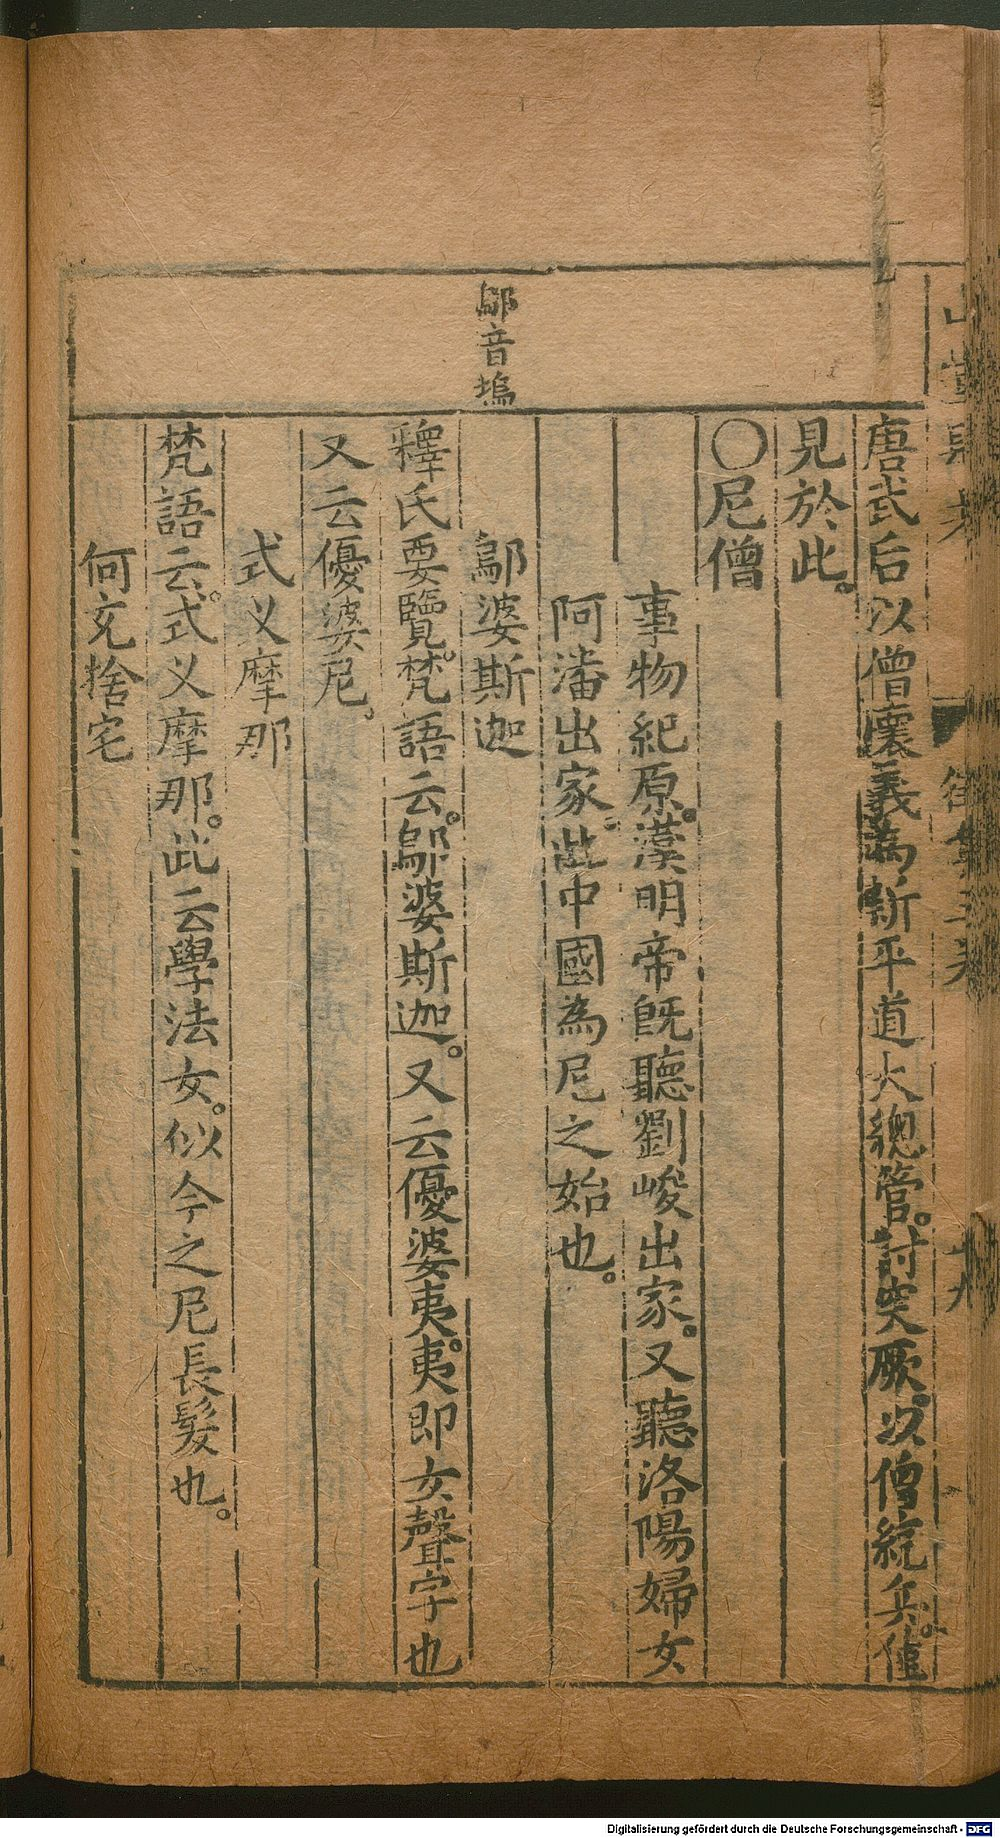 唐武后以僧懷義為新平道大總管。討突厥。次僧統兵。僅
見於此。
〇尼僧
事物紀原。漢明帝既聽劉峻出家。又聽洛陽婦女
阿潘出家。此中國為尼之始也。
鄔音塢
鄔婆斯迦
釋氏要覽。梵語云。鄔婆斯迦。又云優婆夷。夷即女聲字也
又云優婆尼。
式义摩那
梵語云。式义摩那。此云學法女。似今之尼長髮也。
何充捨宅
Digitalisierung gefördert durch die Deutsche Forschungsgemeinschaft - DFG